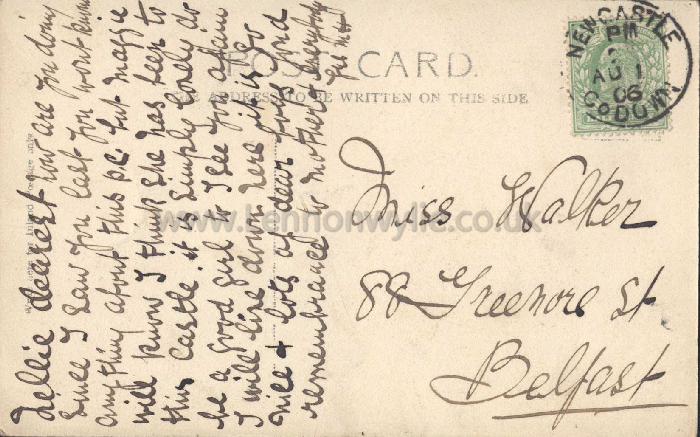 POST CARD.
THE ADDRESS TO BE WRITTEN ON THIS SIDE
NEWCASTLE
PM
AU 1
06
Co DOWN
Nellie dearest how are you doing
since I saw you last you wont know
anything about this p.c. but Maggie
will know I think she has been to
this Castle. it is simply lovely do
be a good girl to I see you again
I will live down here it is so
nice & lots of dear fond
remembrance to mother & everybody
Miss Walker
88 Greenore St
Belfast
www.lennonwylie.co.uk